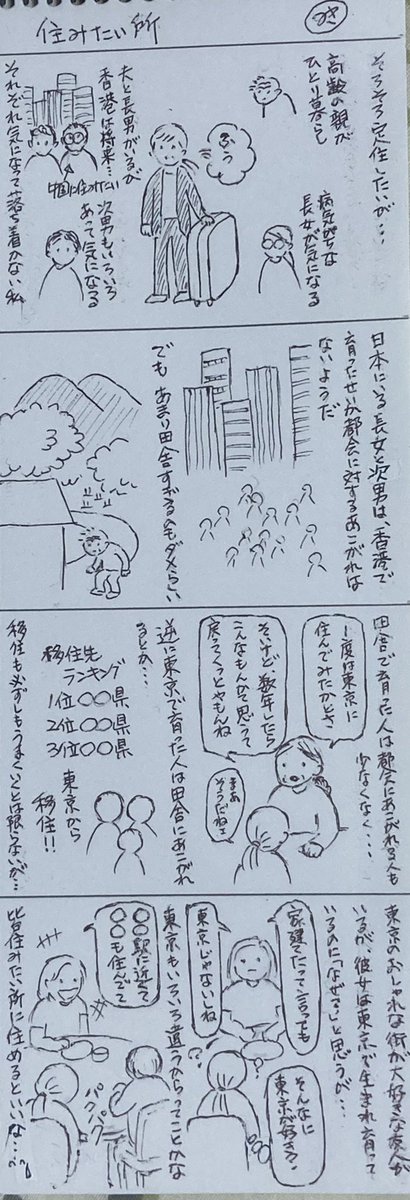 住みたい所
つき
そろそろ定住したいが・・・
高齢の親が
ひとり暮らし
病気がちな
長女が気になる
ふぅ
夫と長男がいるが
香港は将来…
中国に住みたい
次男もいろいろ
あって気になる
それぞれ気になって落ち着かない私
日本にいる長女と次男は、香港で
育ったせいか都会に対するあこがれは
ないようだ
でも あまり田舎すぎるのもダメらしい
田舎で育った人は都会にあこがれる人も
少なくなく・・・
1度は東京に
住んでみたかとさ
そいけど数年したら
こんなもんかて思うて
戻ってくっとやもんね
まあ
そうだねェ
逆に東京で育った人は田舎にあこがれ
るとか…
移住先
ランキング
1位〇〇県
2位〇〇県
3位〇〇県
東京から
移住!!
移住も必ずしもうまくいくとは限らないが…
東京のおしゃれな街が大好きな友人が
いるが、彼女は東京で生まれ育って
いるのに「なぜ?」と思うが…
家建てたって言っても
東京じゃないしね
そんなに
東京が好き?
東京もいろいろ違うからってことかな
〇〇駅に近くて
〇〇も住んでて
パクパク
皆住みたい所に住めるといいな…